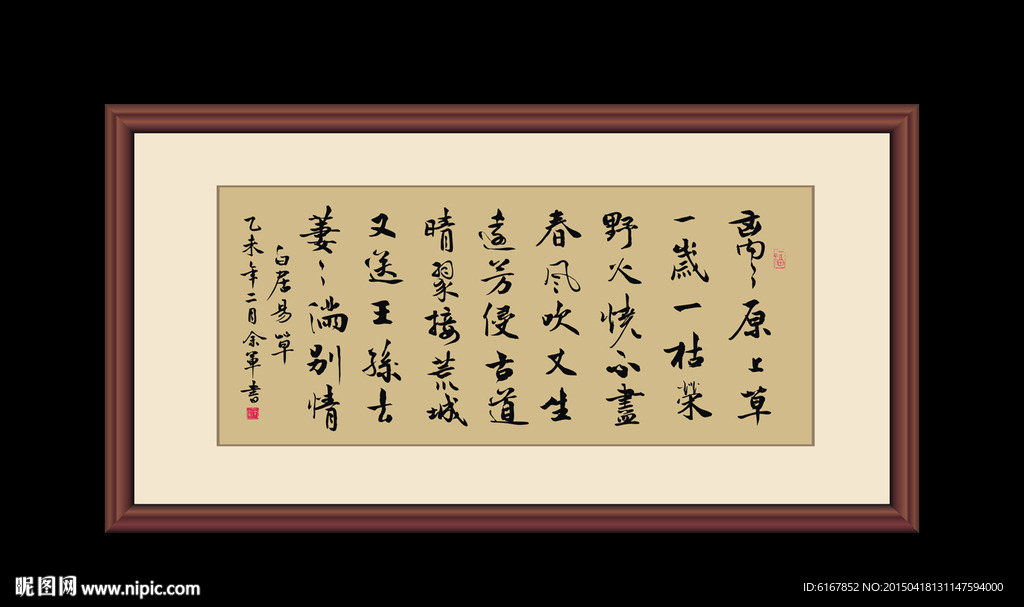 离〻原上草
一歲一枯榮
野火燒不盡
春風吹又生
遠芳侵古道
晴翠接荒城
又送王孫去
萋〻滿別情
白居易草
乙未年二月余軍書
昵图网 www.nipic.com
ID:6167852 NO:20150418131147594000